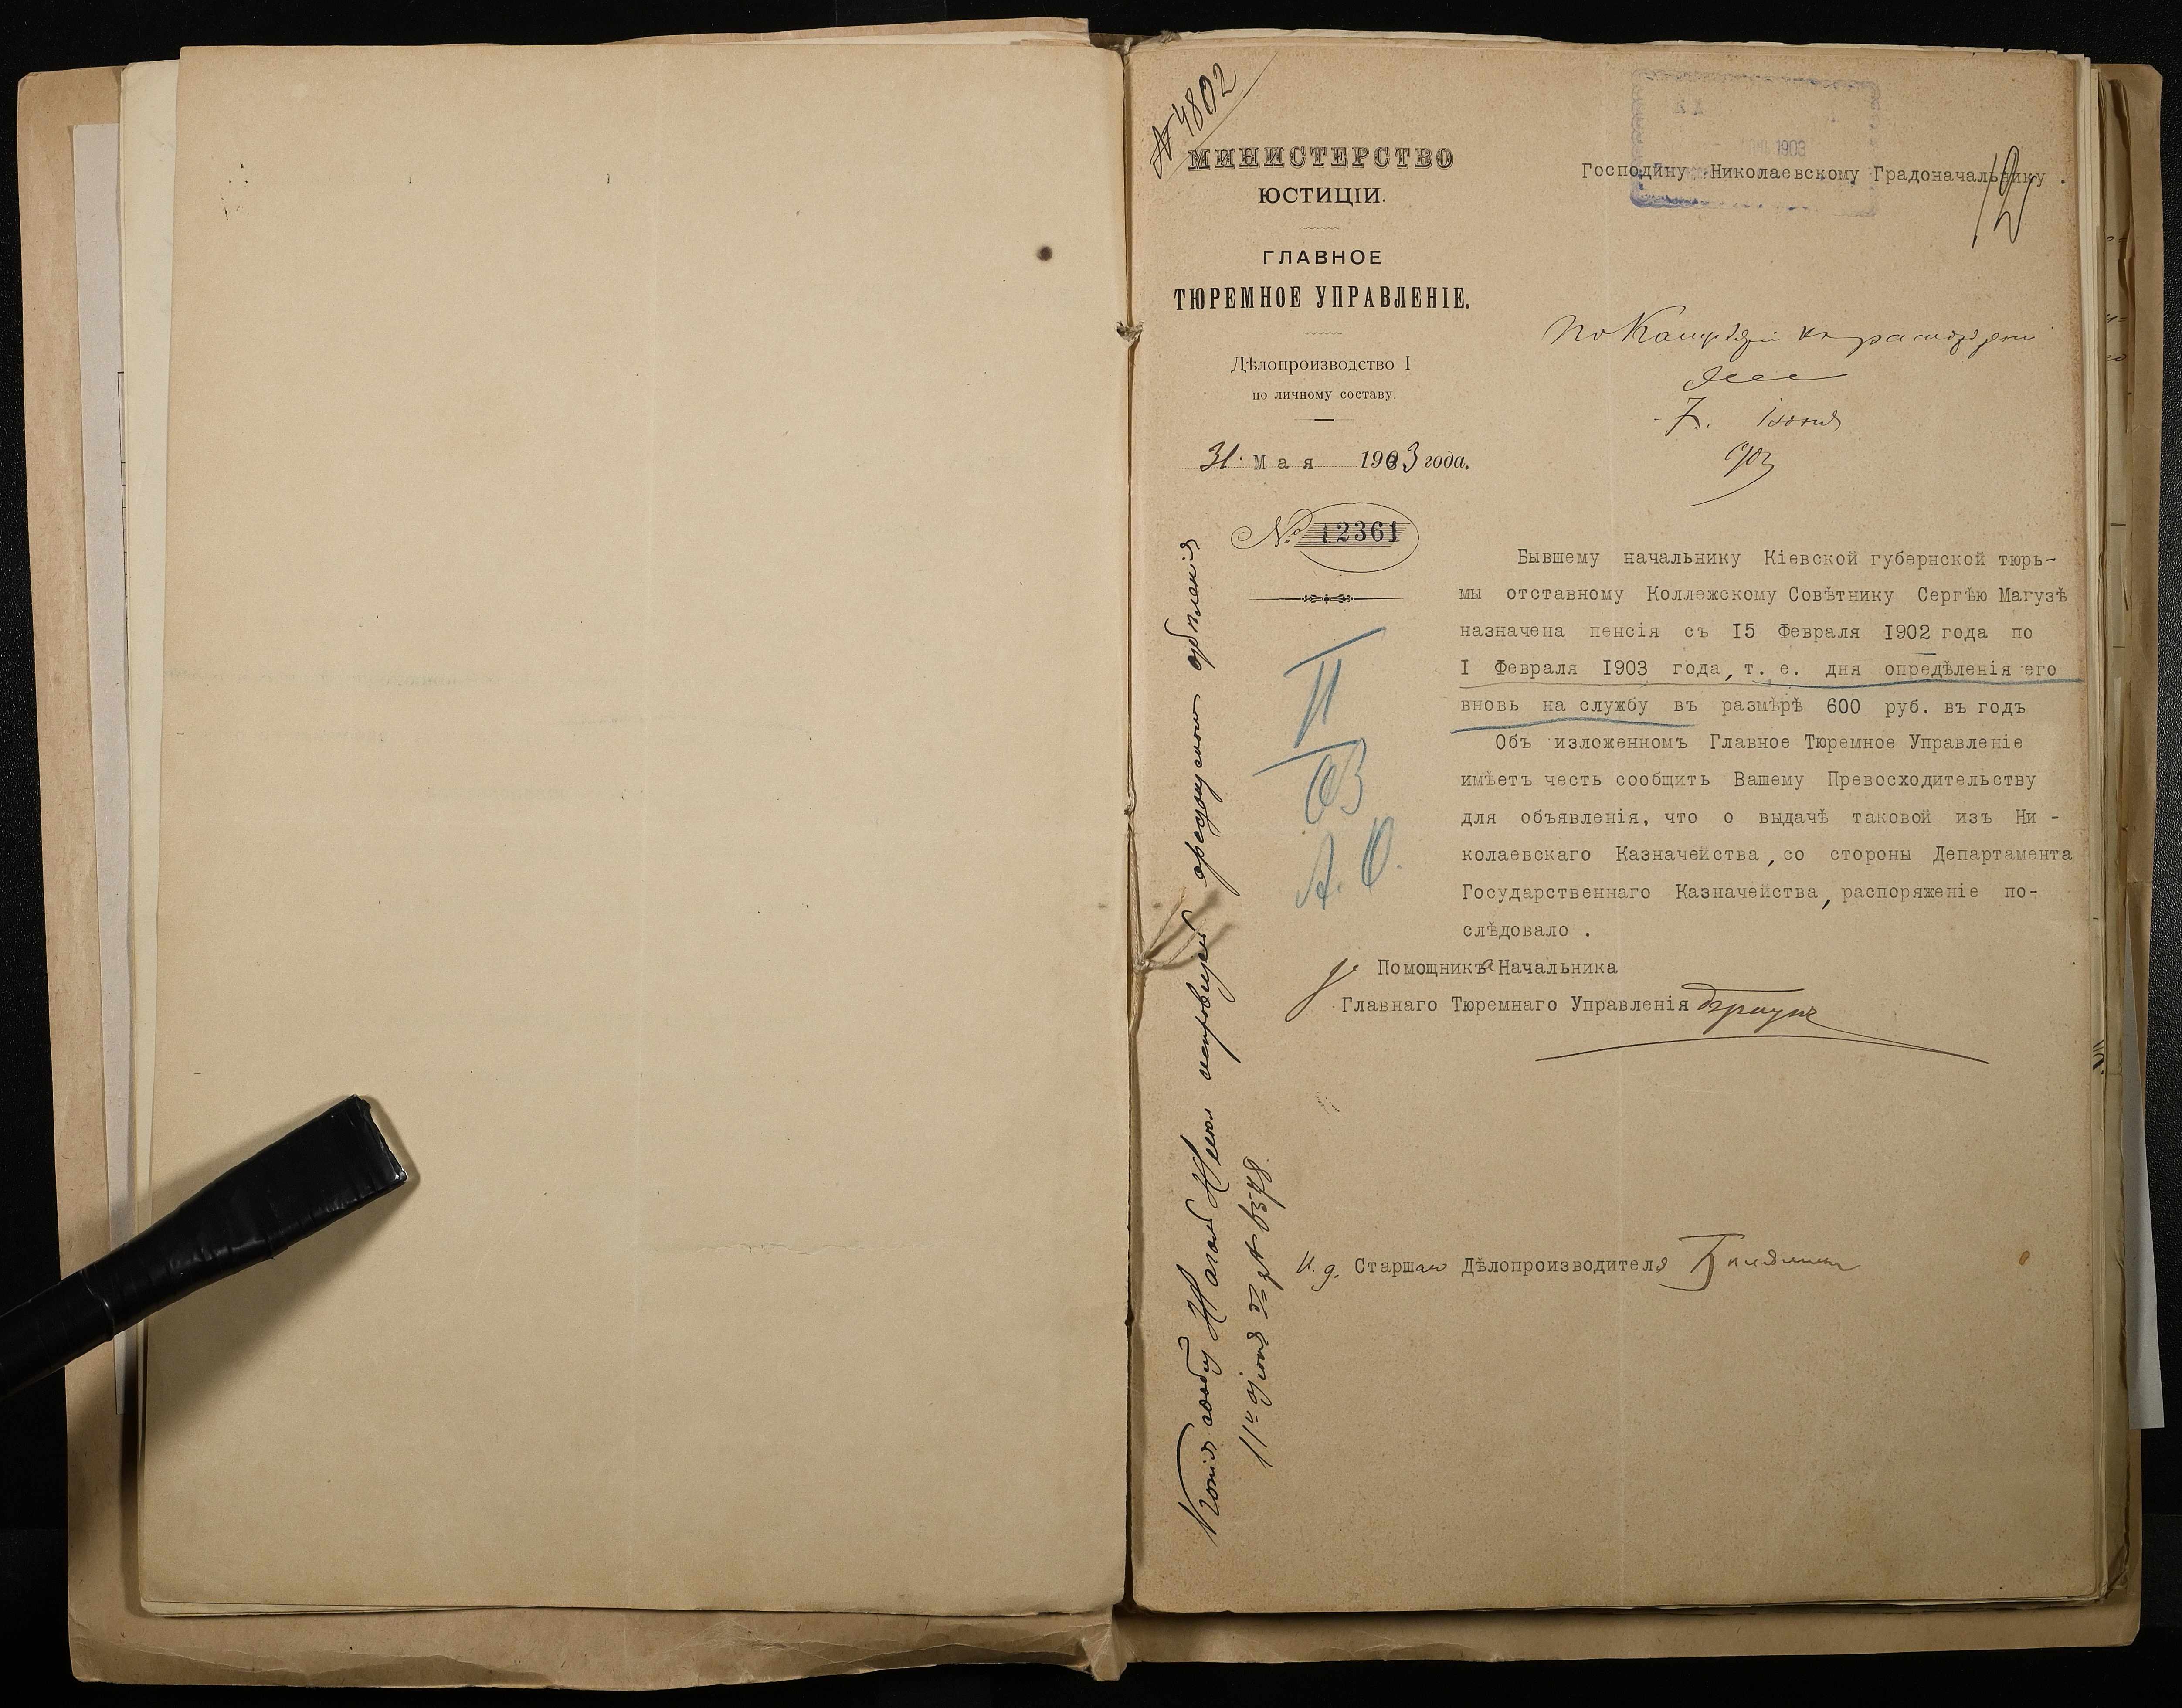 № 4802
МИНИСТЕРСТВО
ЮСТИЦІИ.
ГЛАВНОЕ
ТЮРЕМНОЕ УПРАВЛЕНІЕ.
Дѣлопроизводство I
по личному составу.
31. Мая 1903 года.
№ 12361
1903
Господину Николаевскому Градоначальнику.
12
По Канцеляріи къ
7. Іюня
903
Бывшему начальнику Кіевской губернской тюрь-
мы отставному Коллежскому Совѣтнику Сергѣю Магузѣ
назначена пенсія съ 15 Февраля 1902 года по
I Февраля 1903 года, т. е. дня опредѣленія его
вновь на службу въ размѣрѣ 600 руб. въ годъ
Объ изложенномъ Главное Тюремное Управленіе
имѣетъ честь сообщить Вашему Превосходительству
для объявленія, что о выдачѣ таковой изъ Ни -
колаевскаго Казначейства, со стороны Департамента
Государственнаго Казначейства, распоряженіе по-
слѣдовало .
Помощника Начальника
Главнаго Тюремнаго Управленія
И. д. Старшаго Дѣлопроизводителя
II
03
А. О.
Копія
11 іюня за № 6578.